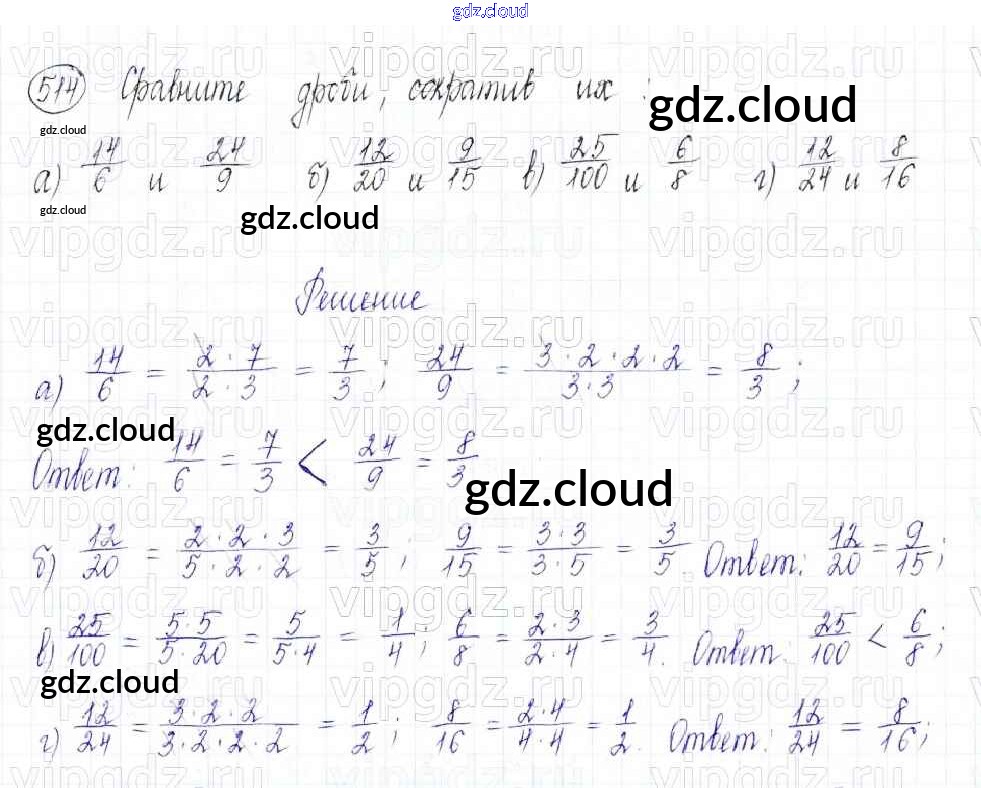 gdz.cloud
514 Сравните дроби, сократив их:
gdz.cloud gdz.cloud
а) 14/6 и 24/9 б) 12/20 и 9/15 в) 25/100 и 6/8 г) 12/24 и 8/16
gdz.cloud gdz.cloud
Решение
а) 14/6 = 2·7/2·3 = 7/3; 24/9 = 3·2·2·2/3·3 = 8/3;
gdz.cloud
Ответ: 14/6 = 7/3 < 24/9 = 8/3
gdz.cloud
б) 12/20 = 2·2·3/5·2·2 = 3/5; 9/15 = 3·3/3·5 = 3/5. Ответ: 12/20 = 9/15;
в) 25/100 = 5·5/5·20 = 5/5·4 = 1/4; 6/8 = 2·3/2·4 = 3/4. Ответ: 25/100 < 6/8;
gdz.cloud
г) 12/24 = 3·2·2/3·2·2·2 = 1/2; 8/16 = 2·4/4·4 = 1/2. Ответ: 12/24 = 8/16;
vipgdz.ru